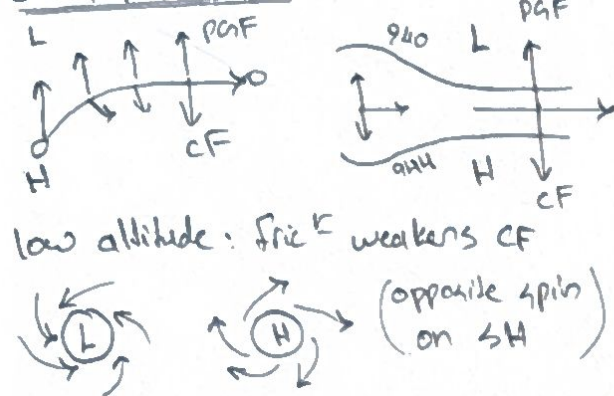 L PGF
H CF
940 L PGF
944 H CF
low altitude: fric⁽ⁿ⁾ weakens CF
L H (opposite spin
on SH)